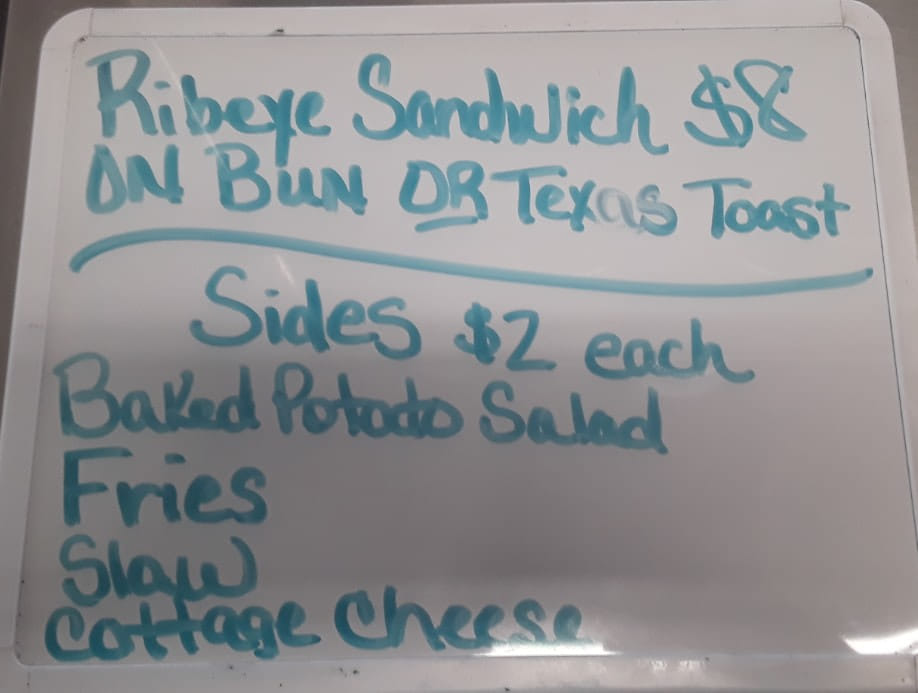 Ribeye Sandwich $8
ON BUN OR Texas Toast
Sides $2 each
Baked Potato Salad
Fries
Slaw
Cottage Cheese